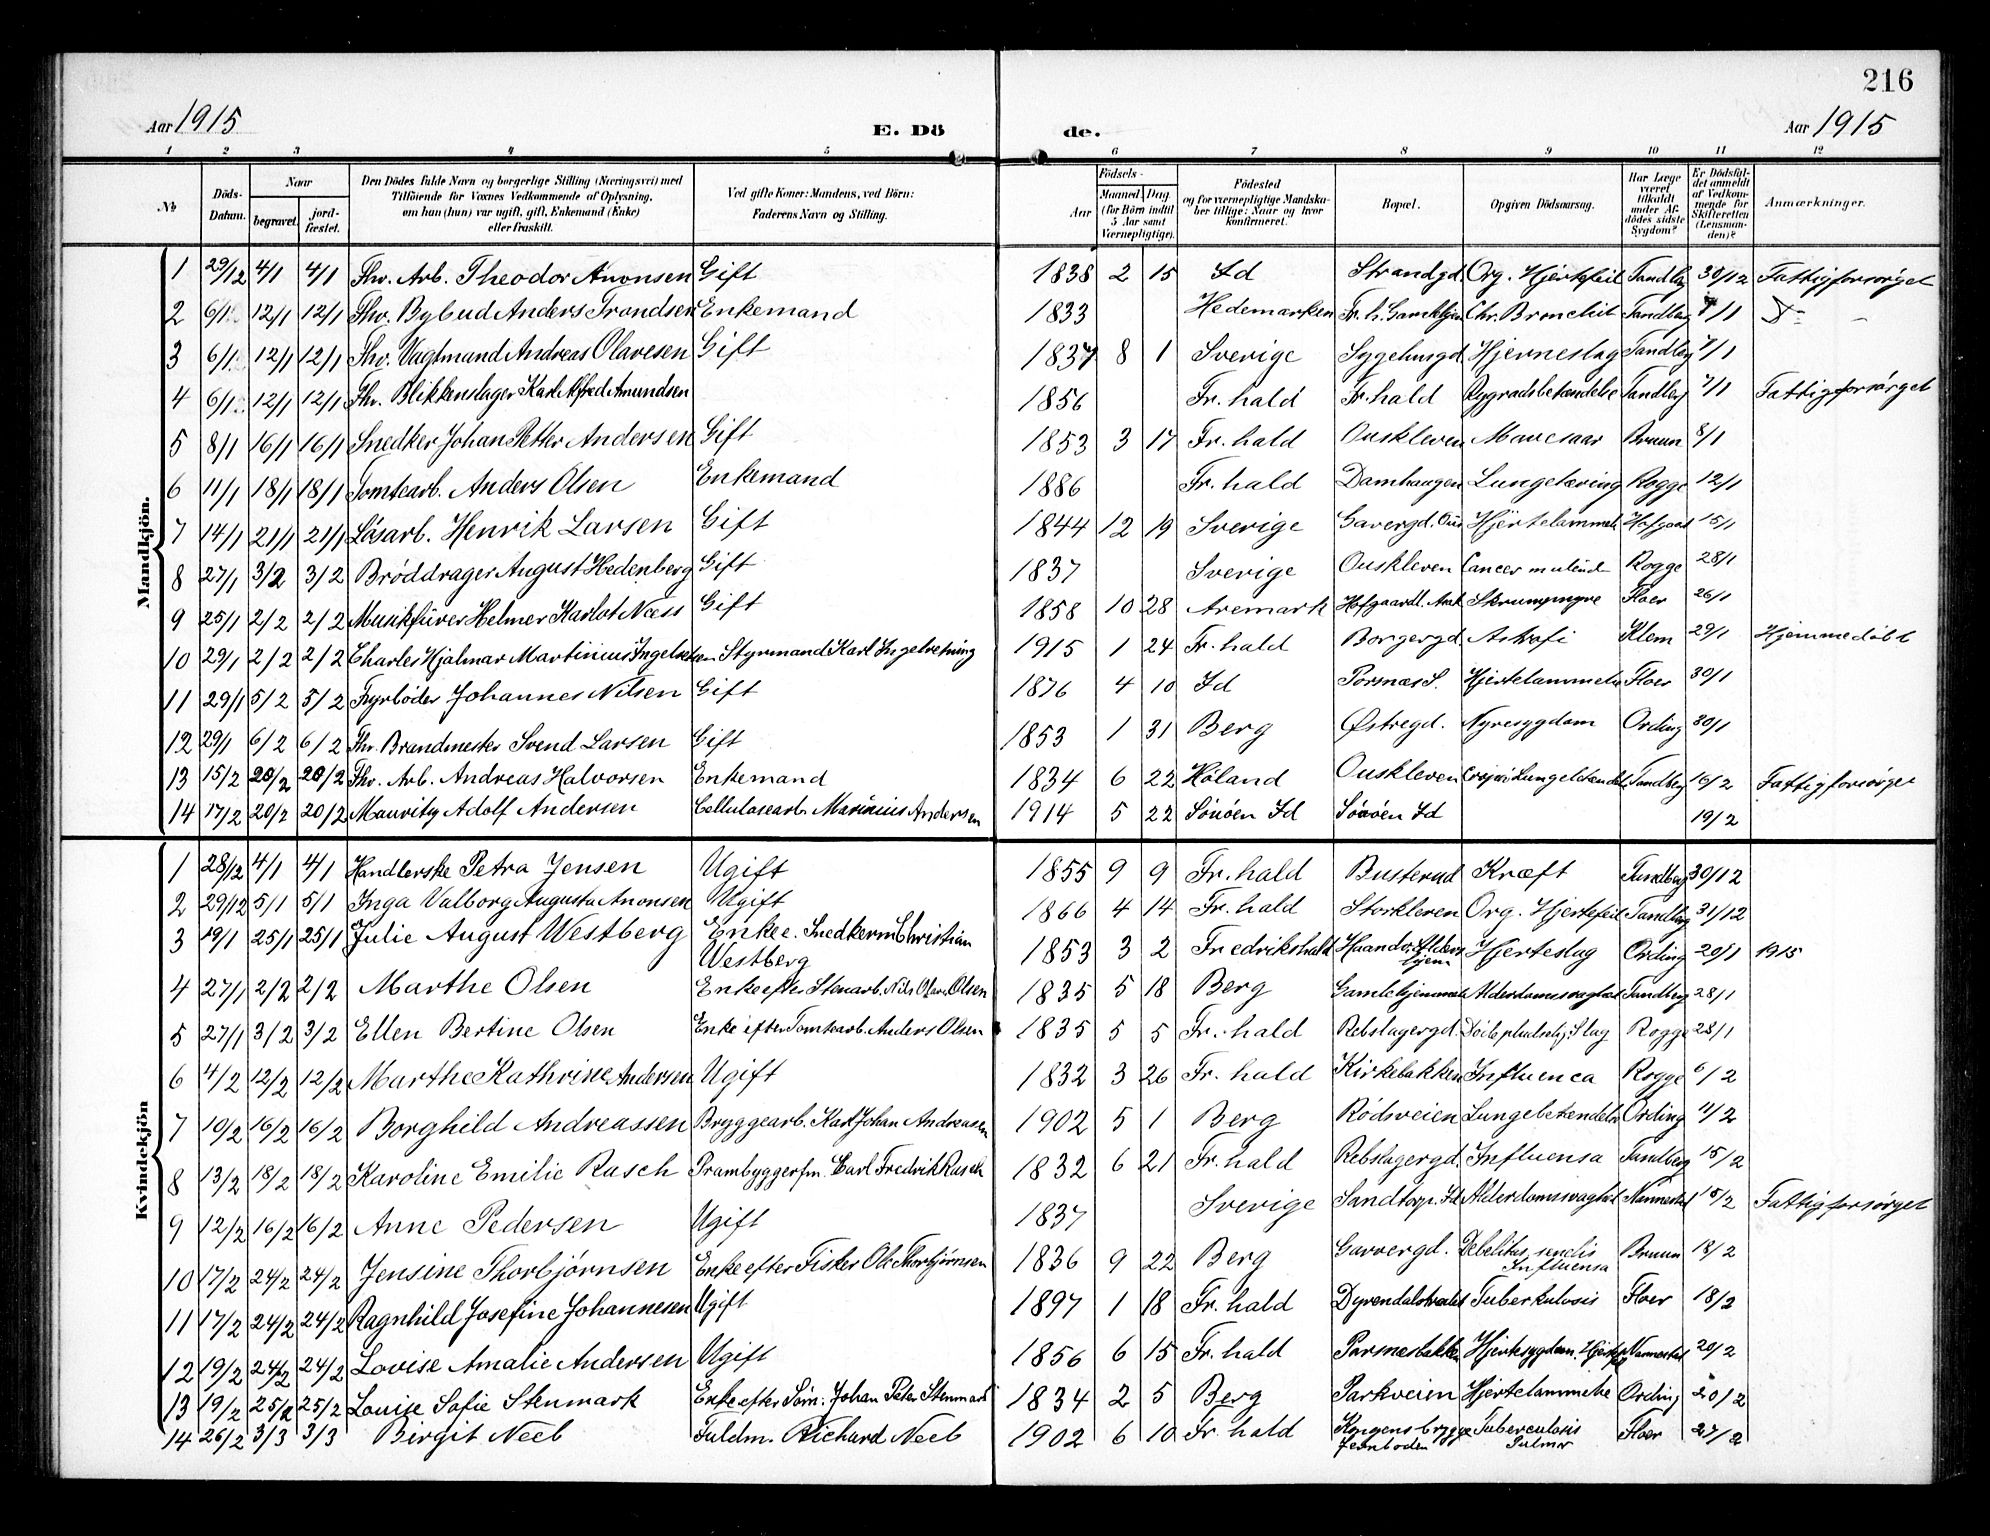 216
Aar 1915
E. Dö
de.
Aar 1915
1 2 3 4 5 6 7 8 9 10 11 12
No
Döds-Datum.
Naar
begravet.
jord-fæstet.
Den Dödes fulde Navn og borgerlige Stilling (Næringsvei) med
Tilföiende for Voxnes Vedkommende af Oplysning,
om han (hun) var ugift, gift, Enkemand (Enke)
eller fraskilt.
Ved gifte Koner: Mandens, ved Börn:
Faderens Navn og Stilling.
Födsels-
Aar
Maaned Dag
(for Börn indtil
5 Aar samt
Værnepligtige).
Födested
og for værnepligtige Mandska-
ber tillige: Naar og hvor
konfirmeret.
Bopæl.
Opgiven Dödsaarsag.
Har Læge
været
tilkaldt
under Af-
dödes sidste
Sygdom?
Er Dödsfal-
det anmeldt
af Vedkom-
mende for
Skifteretten
(Lensman-
den)?
Anmærkninger.
Mandkjön.
1 29/12 4/1 4/1 Fhv. Arb. Theodor Anonsen Gift 1838 2 15 Id Strandgd. Org. Hjertefeil Tandberg 30/12 Fattigforsörget
2 6/1 12/1 12/1 Fhv. Bybud Anders Trondsen Enkemand 1833 Hedemarken Fr.h. Gamlehjem Chr. Bronchit Tandberg 7/1 D-
3 6/1 12/1 12/1 Fhv. Vagtmand Andreas Olavesen Gift 1837 8 1 Sverige Sygehusgd. Hjerneslag Tandberg 7/1
4 6/1 12/1 12/1 Fhv. Blikkenslager Karl Alfred Amundsen 1856 Fr. hald Fr. hald Rygradsbetændelse Tandberg 7/1 Fattigforsörget
5 8/1 16/1 16/1 Snedker Johan Petter Andersen Gift 1853 3 17 Fr. hald Ouskleven Mavesaar Bruun 8/1
6 11/1 18/1 18/1 Tomtearb. Anders Olsen Enkemand 1886 Fr. hald Damhaugen Lungetæring Rogge 12/1
7 14/1 21/1 21/1 Løsarb. Henrik Larsen Gift 1844 12 19 Sverige Garvergd. Hjertelammelse Hofgaard 15/1
8 27/1 3/2 3/2 Brøddrager August Hedenberg Gift 1837 Sverige Ouskleven Cancer Rogge 28/1
9 25/1 2/2 2/2 Musikfører Helmer Karlot Næss Gift 1858 10 28 Aremark Skrumpnyre Floer 26/1
10 29/1 2/2 2/2 Charles Hjalmar Martinius Ingelsen Styrmand Karl 1915 1 24 Fr. hald Borgergd. Astrofi Klem 29/1 Hjemmedøbt
11 29/1 5/2 5/2 Fyrbøder Johannes Nilsen Gift 1876 4 10 Id Porsnæs S. Hjertelammelse Floer 30/1
12 29/1 6/2 6/2 Fhv. Brandmester Svend Larsen Gift 1853 1 31 Berg Østregd. Nyresygdom Ording 30/1
13 15/2 20/2 20/2 Fhv. Arb. Andreas Halvorsen Enkemand 1834 6 22 Høland Ouskleven Tandberg 16/2 Fattigforsörget
14 17/2 20/2 20/2 Mauritz Adolf Andersen Cellulosearb. Marinius Andersen 1914 5 22 Sørøen Id Sørøen Id 19/2
Kvindekjön
1 28/12 4/1 4/1 Handlerske Petra Jensen Ugift 1855 9 9 Fr. hald Busterud Kræft Tandberg 30/12
2 29/12 5/1 5/1 Inga Valborg Augusta Anonsen Ugift 1866 4 14 Fr. hald Storkleven Org. Hjertefeil Tandberg 31/12
3 19/1 25/1 25/1 Julie August Westberg Enke e. Snedkerm. Christian
Westberg 1853 3 2 Fredrikshald Haandv. Alders
hjem Hjerteslag Ording 20/1 1915
4 27/1 2/2 2/2 Marthe Olsen Enke efter Stenarb. Nils Olav. Olsen 1835 5 18 Berg Gamlehjemmet Alderdomssvaghed Tandberg 28/1
5 27/1 3/2 3/2 Ellen Bertine Olsen Enke efter Tomtearb. Anders Olsen 1835 5 5 Fr. hald Rebslagergd. Slag Rogge 28/1
6 4/2 12/2 12/2 Marthe Kathrine Andersen Ugift 1832 3 26 Fr. hald Kirkebakken Influenca Rogge 6/2
7 10/2 16/2 16/2 Borghild Andreassen Bryggearb. Karl Johan Andreasen 1902 5 1 Berg Rødsveien Lungebetendelse Ording 11/2
8 13/2 18/2 18/2 Karoline Emilie Rasch Prambyggerfm. Carl Fredrik Rasch 1832 6 21 Fr. hald Rebslagergd. Influensa Tandberg 15/2
9 12/2 16/2 16/2 Anne Pedersen Ugift 1837 Sverige Sandtorp. Id Alderdomssvaghed Nannestad 15/2 Fattigforsörget
10 17/2 24/2 24/2 Jensine Thorbjørnsen Enke efter Fisker Ole Thorbjørnsen 1836 9 22 Berg Garvergd. Debelitas senilis
Influensa Bruun 18/2
11 17/2 24/2 24/2 Ragnhild Josefine Johannesen Ugift 1897 1 18 Fr. hald Tuberkulosis Floer 18/2
12 19/2 24/2 24/2 Lovise Amalie Andersen Ugift 1856 6 15 Fr. hald Porsnesbakken Hjertesygdom. Nannestad 20/2
13 19/2 25/2 25/2 Louise Sofie Stenmark Enke efter Søm. Johan Peter Stenmark 1834 2 5 Berg Parkveien Hjertelammelse Ording 20/2
14 26/2 3/3 3/3 Birgit Neeb Fuldm. Richard Neeb 1902 6 10 Fr. hald Kongens brygge
Jernboden Tuberculosis
Pulmor Floer 27/2